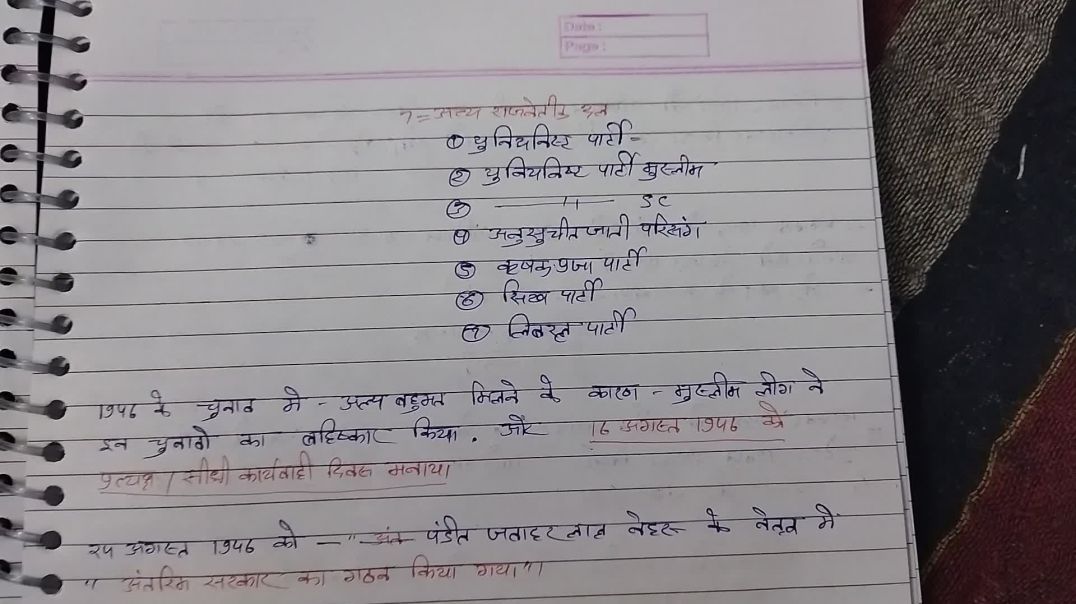 Date:
Page:
7= अन्य राजनेतीक दल
① युनियनिस्ट पार्टी-
② युनियनिष्ट पार्टी मुस्लीम
③ ——〃—— SC
④ अनुसुचीत जाती परिसंग
⑤ कृषक प्रजा पार्टी
⑥ सिख पार्टी
⑦ लिबरल पार्टी
1946 के चुनाव मे - अल्प बहुमत मिलने के कारण - मुस्लीम लीग ने
इन चुनावो का बहिष्कार किया. और 16 अगस्त 1946 को
प्रत्यक्ष / सीधी कार्यवाही दिवस मनाया।
24 अगस्त 1946 को - " पंडीत जवाहर लाल नेहरू के नेतृत्व में
" अंतरिम सरकार का गठन किया गया"।